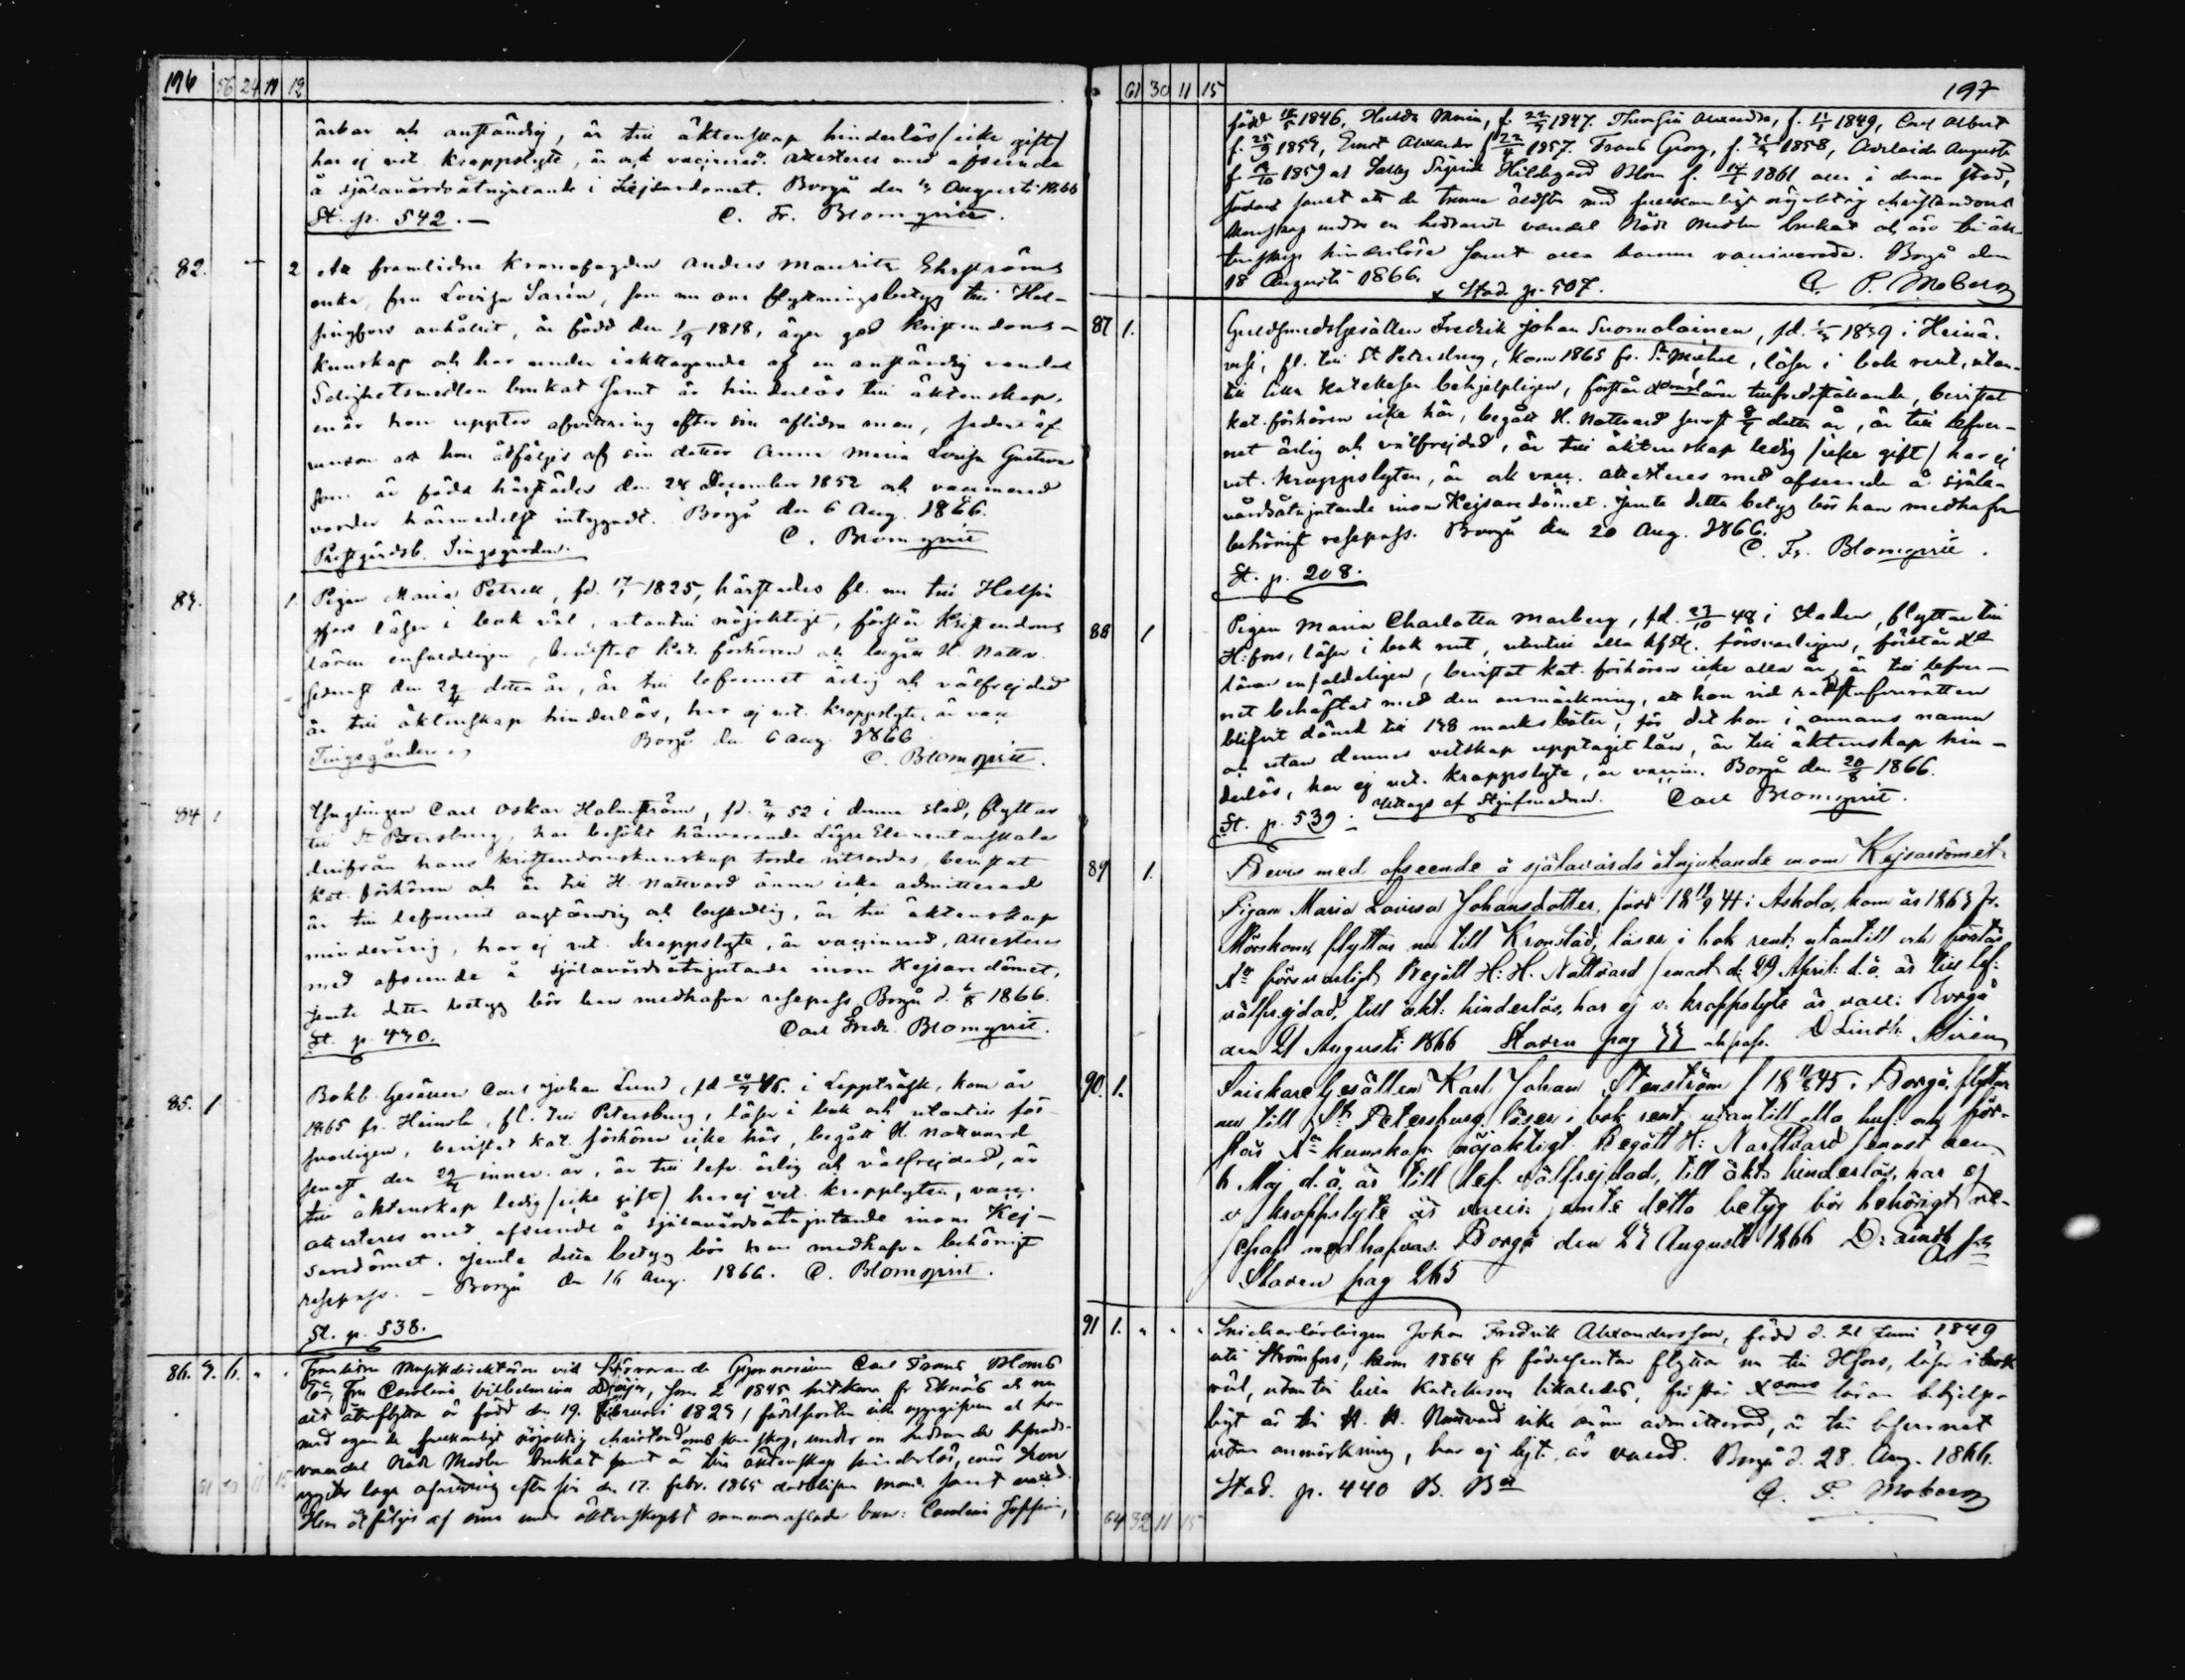 196 56 24 11 12
ärbar och anständig, är till äktenskap hinderlös /icke gift/
har ej vet. kroppslyte, är och vaccinerad. Attesteras med afseende
å själavårdsåtnjutande i Kejsardömet. Borgå den Augusti 1866
St. p. 542. — C. Fr. Blomqvist.
82. 2 Att framlidne Kronofogden Anders Maurits Ehrströms
enka, fru Lovisa Sarén, som nu om flyttningsbetyg till Hel-
singfors anhållit, är född den 1/9 1818, äger god kristendoms-
kunskap och har under iakttagande af en anständig vandel
Salighetsmedlen brukat samt är hinderlös till äktenskap,
enär hon uppter afvittring efter sin aflidne man, sedan äf-
som att hon åtföljes af sin dotter Anna Maria Lovisa Gustava
som är född härstädes den 24 December 1852 och vaccinerad
varder härmedelst intygadt. Borgå den 6 Aug. 1866.
Prestgårdsb. Tingsgården. C. Blomqvist
83. 1. Pigan Maria Petrell, fd. 17/1 1825, härstädes fl. nu till Helsin
gfors läser i bok väl, utantill nöjaktigt, förstår Kristendoms
läran enfaldeligen, bevistat kat. förhören och begått H. Nattv.
senast den 29/4 detta år, är till lefvernet ärlig och välfrejdad
är till äktenskap hinderlös, har ej vet. kroppslyte, är vacc
Tingsgården Borgå den 6 aug 1866
C. Blomqvist.
84 1 Ynglingen Carl Oskar Holmström, fd. 2/4 52 i denna stad, flyttar
till St Petersburg, har besökt härvarande Lägre Elementarskola
hvarifrån hans kristendomskunskap torde vitsordas, bevistat
Kat. förhören och är till H. Nattvard ännu icke admitterad
är till lefvernet anständig och beskedlig, är till äktenskap
minderårig, har ej vet. kroppslyte, är vaccinerad, attesteras
med afseende å själavårdsåtnjutande inom Kejsaredömet,
jemte detta betyg bör han medhafva respass. Borgå d. 6/8 1866.
St. p. 430. Carl Fredr. Blomqvist.
85. 1 Bokb. Gesällen Carl Johan Lund, fd 24/4 46. i Lappträsk, kom år
1865 fr. Heinola, fl. till Petersburg, läser i bok och utantill för-
svarligen, bevistat kat. förhören icke här, begått H. Nattvard
senast den 29/4 innev. år, är till lefv. ärlig och välfrejdad, är
till äktenskap ledig /icke gift/ har ej vet. kropplyten, vacc.
attesteras med afseende å själavårdsåtnjutande inom Kej-
saredömet. Jemte detta betyg bör han medhafva behörigt
respass. — Borgå den 16 Aug. 1866. C. Blomqvist.
St. p. 538.
86. 3. 6. Framlidne Musikdirektören vid härvarande Gymnasium Carl Frans Bloms
Fru Carolina Vilhelmina som 1845 hitkom fr Ekenäs och nu
dit återflyttar är född den 19. Februari 1823, födelseorten icke uppgifven at hon
med egande försvarligt nöjaktig christendoms kunskap, under en hedrande
vandel Nåde Medlen brukat samt är till äktenskap hinderlös, enär hon
uppter laga afvittring efter sin den 17. febr. 1865 aflidne man samt vacc.
Hon åtföljes af sina under äktenskapet sammanaflade barn: Carolina Sofia,
61 30 11 15
61 30 11 15 197
född 1846, Hulda Maria, f. 22/9 1847. Theresia Alexandra, f. 11/1 1849, Carl Albert
f. 25/9 1854, Ernst Alexander f 22/4 1857. Frans Georg, f. 1858, Adelaide Augusta
f. 1859 och Sally Sigrid Hildegard Blom f. 1861 alla i denna stad,
sådant samt att de trenne äldsta med försvarligt nöjaktig christendoms
kunskap under en hedrande vandel Nåde Medlen brukat och äro till äk-
tenskap hinderlösa samt alla barnen vaccinerade. Borgå den
18 Augusti 1866. Stad. p. 507. C. P. Moberg
87 1. Guldsmedsgesällen Fredrik Johan Suomalainen, fd. 1839 i Heinä-
vesi, fl. till St Petersburg, kom 1865 fr. St Michel, läser i bok rent, utan-
till lilla Katekesen behjelpligen, förstår Xdomsläran tillfredsställande, bevistat
kat. förhören icke här, begått H. Nattvard senast detta år, är till lefver-
net ärlig och välfrejdad, är till äktenskap ledig /icke gift/ har ej
vet. kroppslyten, är och vacc. attesteras med afseende å själa-
vårdsåtnjutande inom Kejsaredömet. Jemte detta betyg bör han medhafva
behörigt respass. Borgå den 20 Aug. 1866.
C. Fr. Blomqvist.
St. p. 208.
88 1 Pigan Maria Charlotta Marberg, fd. 23/10 48 i Staden, flyttar till
H:fors, läser i bok rent, utantill alla hfst. försvarligen, förstår Xds
läran enfaldeligen, bevistat kat. förhören icke alla år, är till lefver-
net behäftad med den anmärkning, att hon vid Rådstufvurätten
blifvit dömd till 148 marks böter, för det hon i annans namn
och utan dennes vetskap upptagit lån, är till äktenskap hin-
derlös, har ej vet. kroppslyte, är vaccin. Borgå den 20/8 1866.
St. p. 539. Uttags af Styfmodren. Carl Blomqvist.
89 1. Bevis med afseende å själavårds åtnjutande inom Kejsardömet
Pigan Maria Lovisa Johansdotter, född 18 19/9 44 i Askola, kom år 1863 fr.
Mörskom, flyttar nu till Kronstad, läser i bok rent, utantill och förstår
Xn försvarligt, Begått H: H. Nattvard senast d: 29 April: d. å. är till lef:
välfrejdad, till äkt: hinderlös, har ej v. kroppslyte är vacc: Borgå
den 21 Augusti 1866 Staden pag 33 D Lindh
90. 1. Snickare Gesällen Karl Johan Stenström f 18 45 i Borgå, flyttar
nu till St: Petersburg, läser i bok rent, utantill alla huf: och för-
står Xn kunskap nöjaktigt. Begått H: Nattvard senast den
6 Maj d. å. är till lef. välfrejdad, till äkt. hinderlös, har ej
v kroppslyte är vaccin jemte detta betyg bör behörigt re-
sepass medhafvas. Borgå den 27 Augusti 1866 D: Lindh
Staden pag 265
91 1. Snickarlärlingen Johan Fredrik Alexandersson, född d. 21 Juni 1849
uti Strömfors, kom 1864 fr födelseorten flyttar nu till Hfors, läser i bok
väl, utantill lilla Katekesen likaledes, förstår Xdoms läran behjelp-
ligt är till H. H. Nattvard icke ännu admitterad, är till lefvernet
utan anmärkning, har ej lyte, är vaccd. Borgå d. 28. Aug. 1866.
Stad. p. 440 B. C. P. Moberg
64 32 11 15